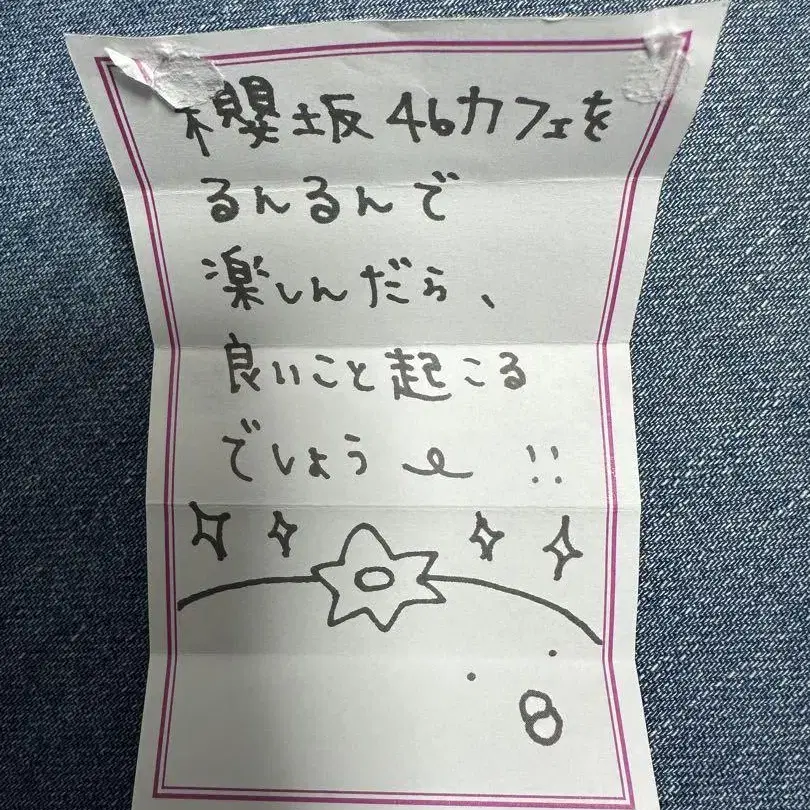 櫻坂46カフェを
るんるんで
楽しんだら、
良いこと起こる
でしょう〜!!